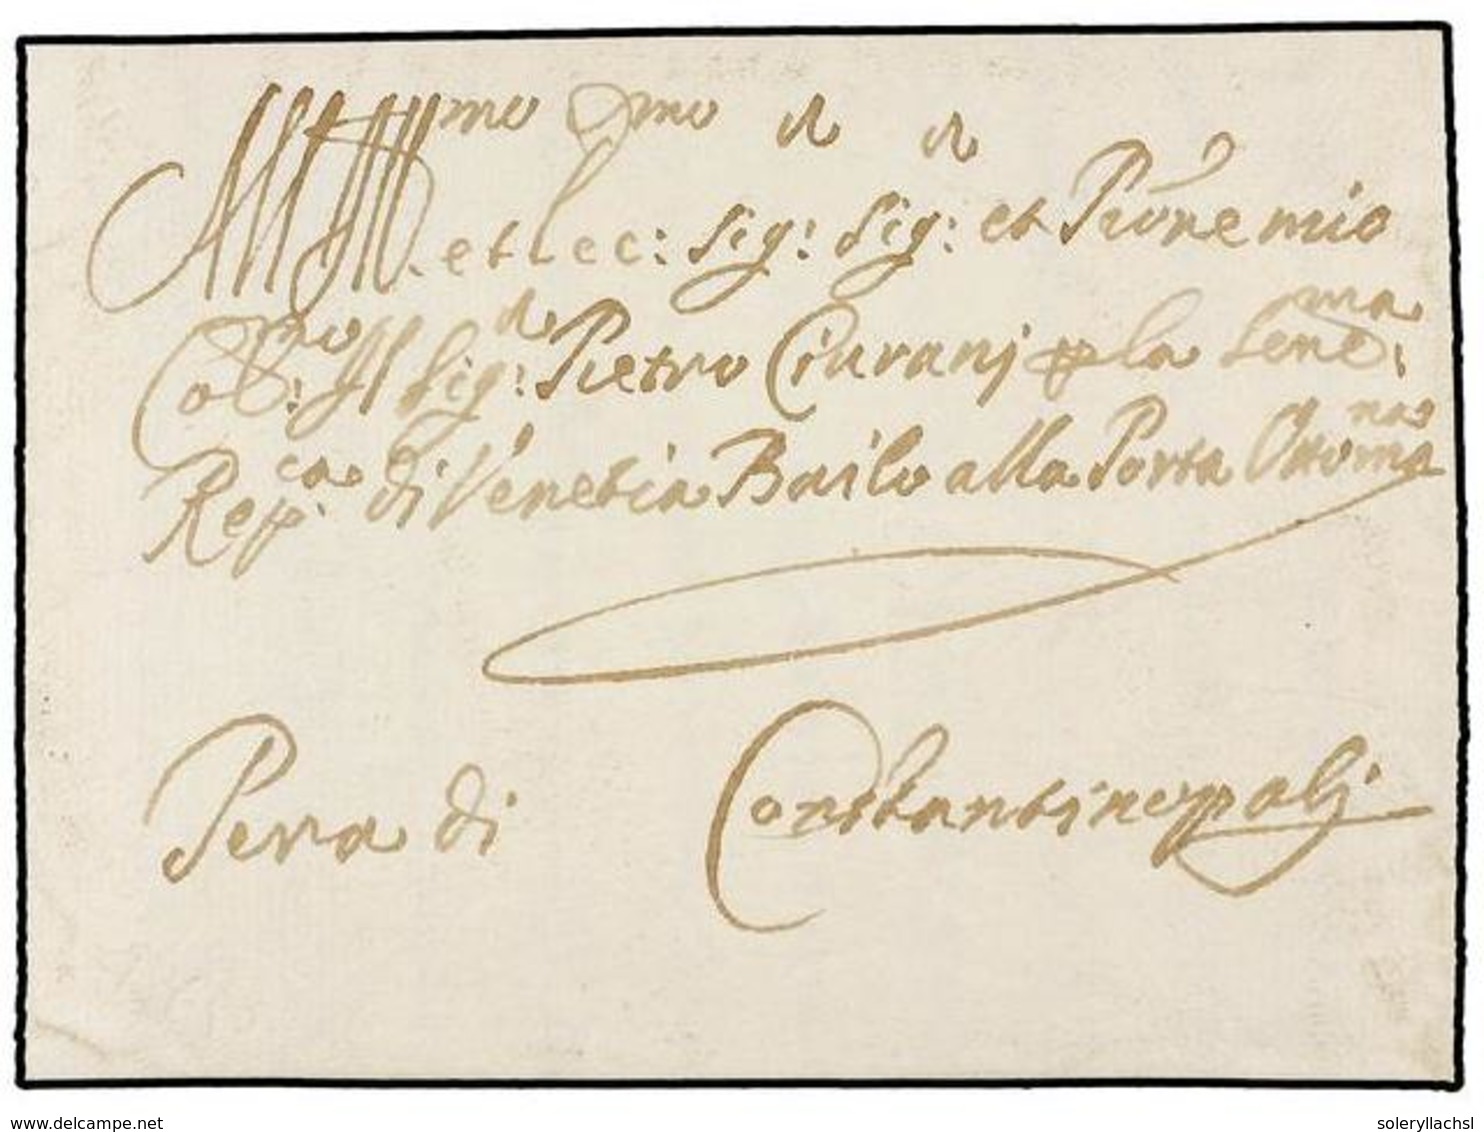 Ill.mo et Ecc:mo Sig:r Sig:r et P̃rone mio
Col:mo Il Sig:r Pietro Ciuranj p la Sere:ma
Rep:ca di Venetia Bailo alla Porta Ottomana
Pera di Constantinopolj
www.delcampe.net
soleryllachsl